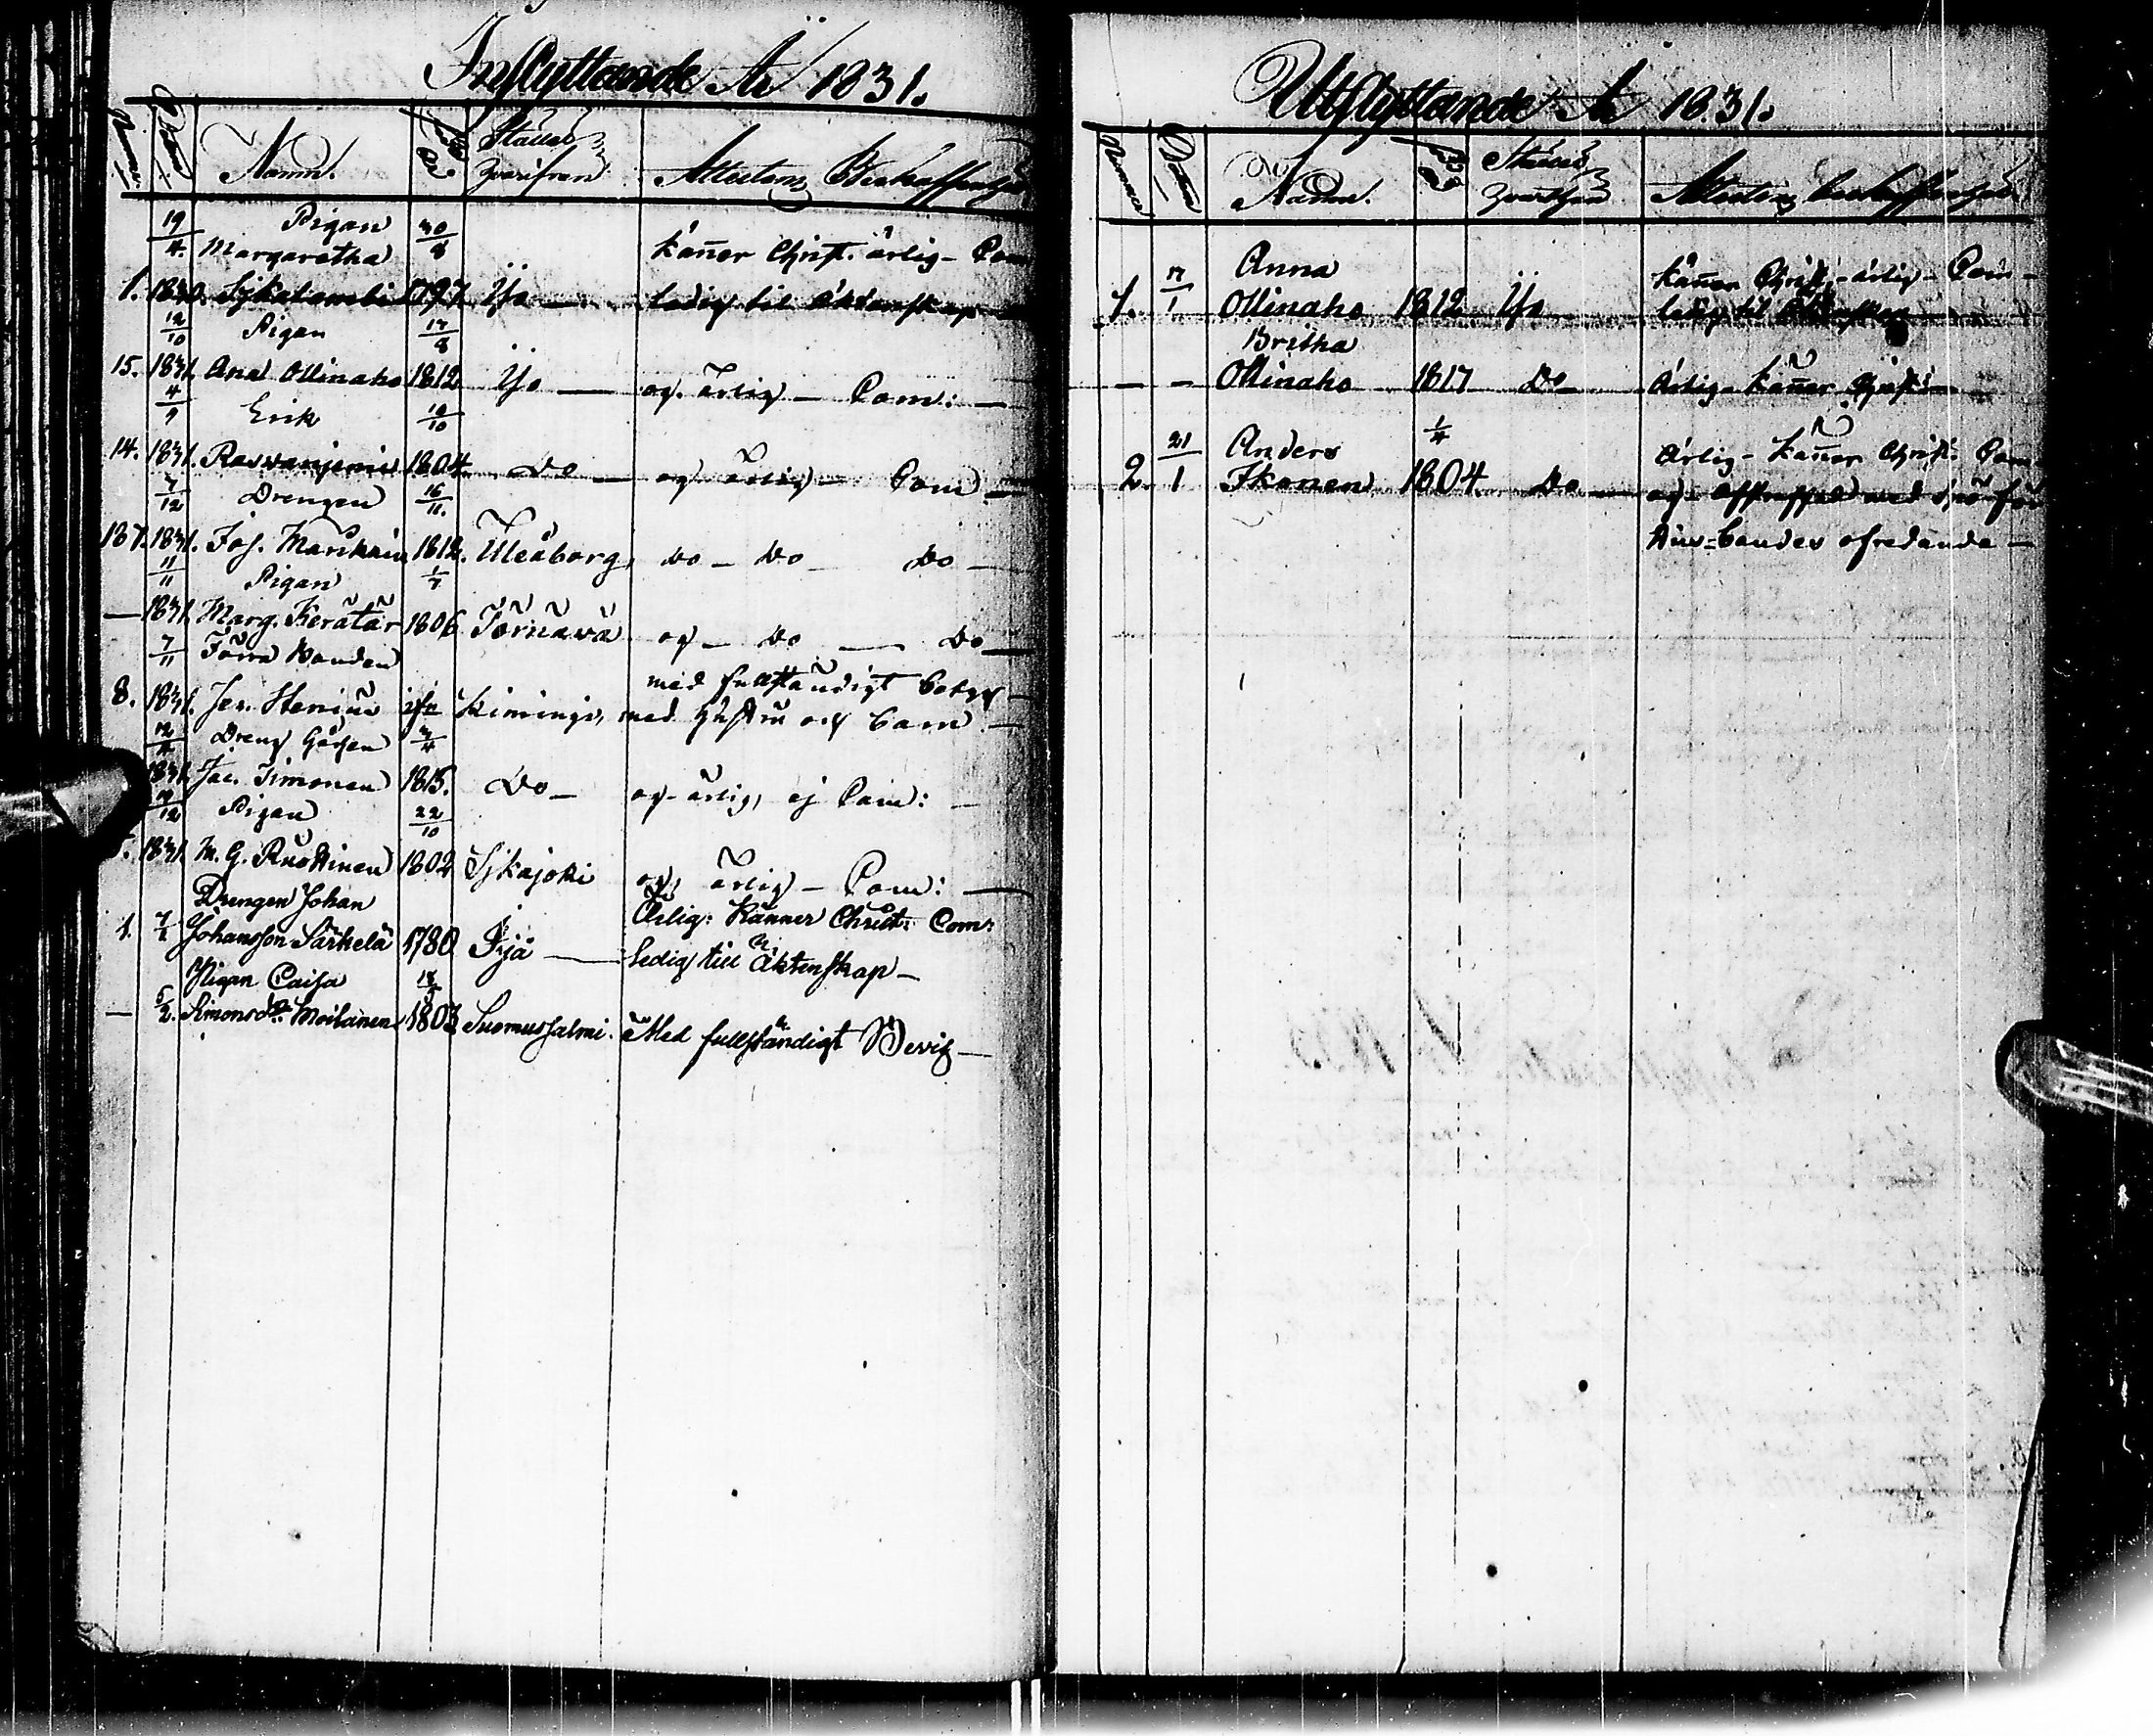 Inflyttande År 1831.
Numer Datum Namn. Född År Stället hvarifrån Attestens Beskaffenhet
19/4. Pigan 30/8 känner Christ. ärlig - Com
Margaretha
1. 1830. Sjkalambi 1797 Ijo — ledig til äktenskap —
12/10 Pigan 17/8
15. 1831. Ana Ollinaho 1812 Ijo — och ärlig — Com: —
4/7 Erik 10/10
14. 1831. 1804 Do — och ärlig — Com —
7/12 Drengen 16/11.
187. 1831. Joh. 1812. Uleåborg, Do — Do — Do —
11/11 Pigan 1/7
— 1831. Marg. Kerätär 1806 och — Do — Do —
7/11 Förra
8. 1831. Stenius Kimingi, med fullständigt
med hustru och barn —
12/4 Dreng Gåssen 3/4
1831. Jac. Timonen 1815. Do — och ärlig, ej Com: —
12 Pigan 22/10
5. 1831 M. G. Ruottinen 1802 Sjkajoki och ärlig — Com: —
Drengen Johan Ärlig: Känner Christ: Com:
1. Johansson Särkelä 1780 Ijå — ledig till äktenskap —
Pigan Caisa
— 5/2. Simonsdr. Moilanen 1803 Suomussalmi. Med fullständigt Bevis —
Utflyttande År 1831.
Numer Datum Namn. Född År Stället hvarthän Attestens beskaffenhet
17/1 Anna känner Christ. - ärlig - Com -
1. Ollinaho 1812 Ijo ledig til äktenskap —
Britha
— — Ollinaho 1817 Do — ärlig - känner Christ: —
21/1 Anders 1/4 ärlig - känner Christ. Com
2. Ikonen 1804 Do — och afstraffad med spö för
ofredande —